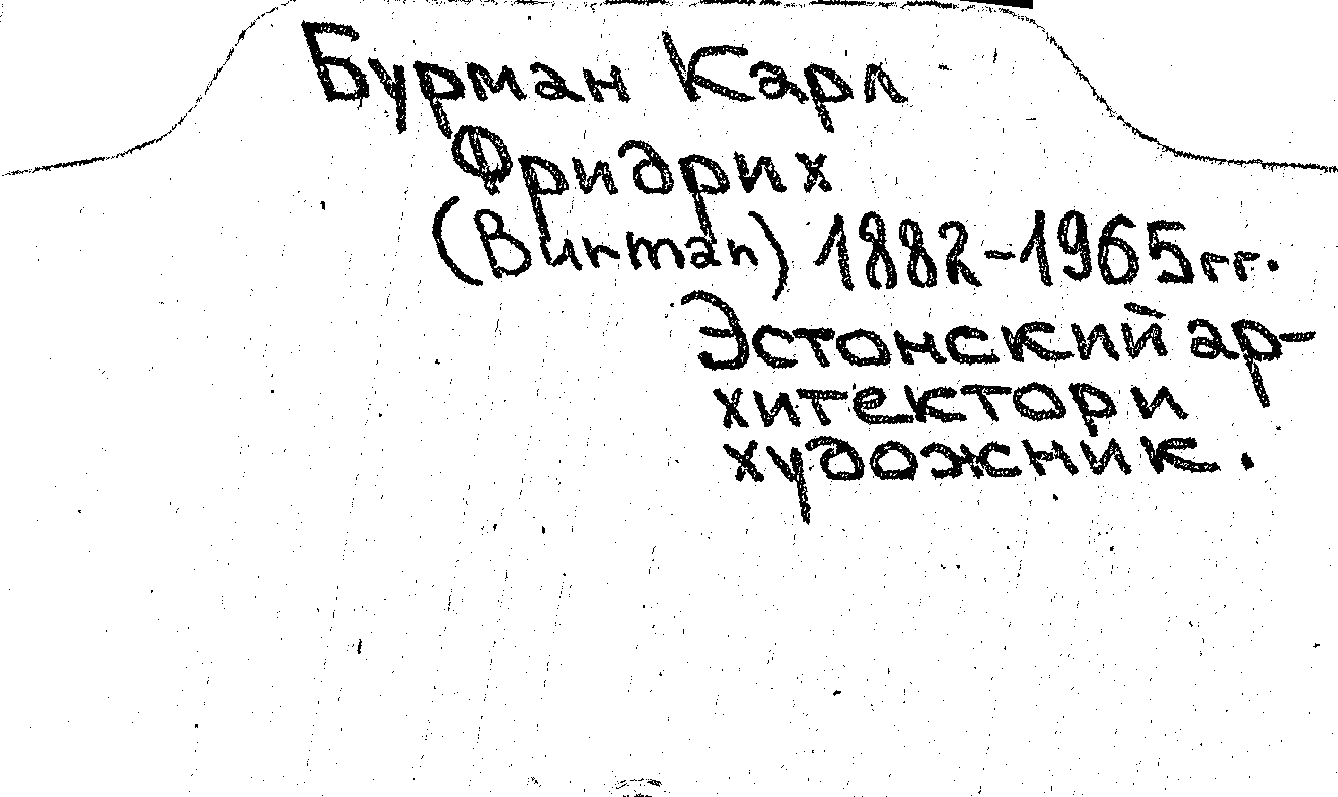 Бурман Карл
Фридрих
(Burman) 1882-1965гг.
Эстонский ар-
хитектор и
художник.